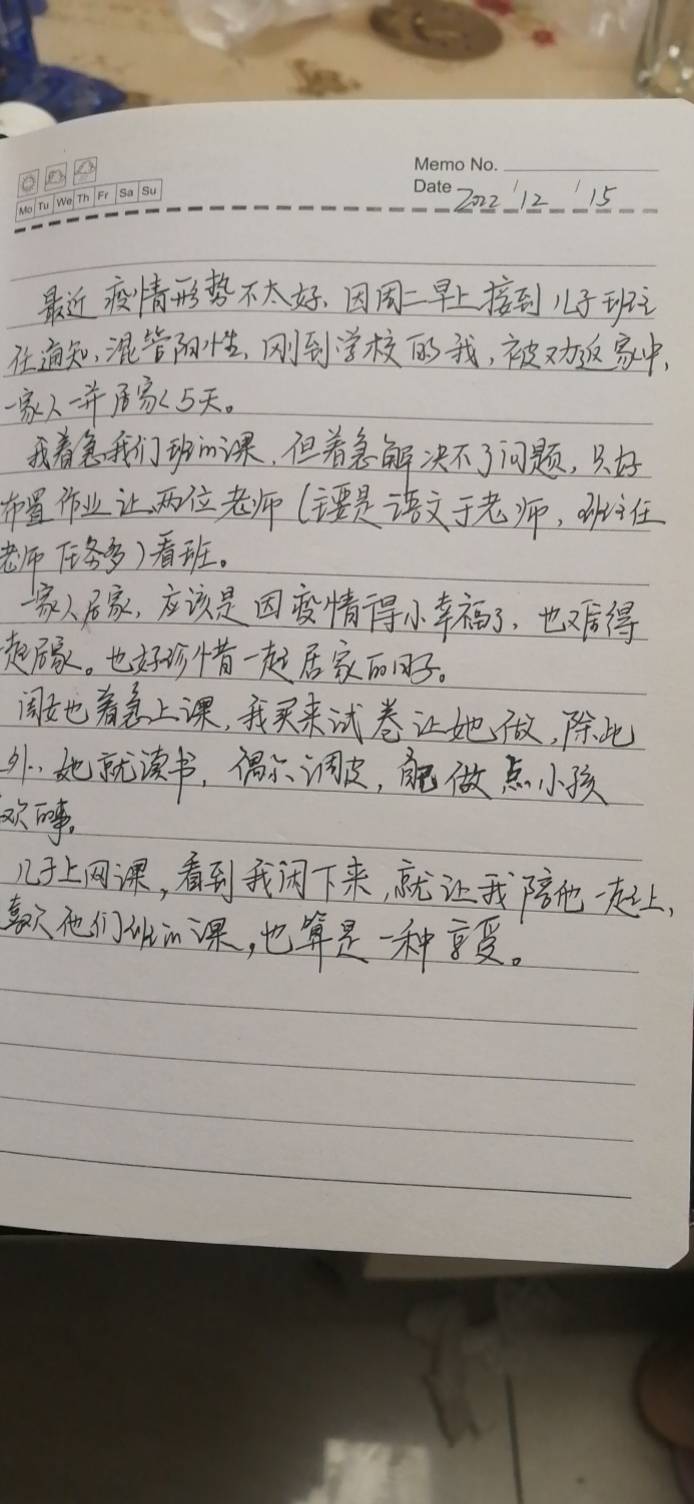 Memo No.
Mo Tu We Th Fr Sa Su
Date 2022/12/15
最近疫情形势不太好，因周二早上接到儿子班主
任通知，混管阳性，刚到学校的我，被劝返家中，
一家人一并居家5天。
我着急我们班的课，但着急解决不了问题，只好
布置作业让两位老师（主要是语文于老师，班主任
老师任务多）看班。
一家人居家，应该是因疫情得小幸福了，也难得
一起居家。也好珍惜一起居家的日子。
闺女也着急上课，我买来试卷让她做，除此
外，她就读书，偶尔调皮，做点小孩
欢的事。
儿子上网课，看到我闲下来，就让我陪他一起上，
喜欢他们班的课，也算是一种享受。